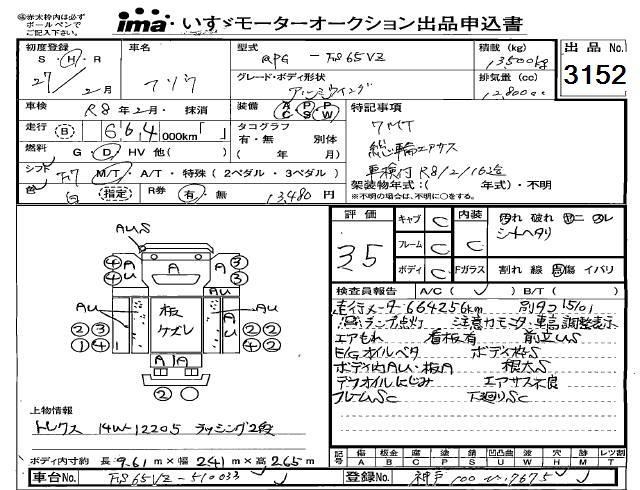 ㊟赤太枠内は必ず
ボールペンで
ご記入下さい。
ima いすゞモーターオークション出品申込書
初度登録
S・H・R
27年2月
車名
フソウ
型式
QPG-FS65VZ
グレード・ボディ形状
アルミウイング
積載(kg)
13500kg
排気量(cc)
12800cc
出品No.
3152
車検
R8年2月・抹消
走行 B 664000km「 」
燃料 G・D・HV 他( )
シフト F7 M/T・A/T・特殊(2ペダル・3ペダル)
色 白 指定 R券 有・無 13,480円
装備 A P P
C S W
タコグラフ
有・無 別体
( 年 月)
特記事項
7MT
総輪エアサス
車検付R8/2/16迄
架装物年式:( 年式)・不明
※不明の場合は、不明に○をする。
評価
3.5
キャブ C
フレーム C
ボディ C
内装
C
Fガラス
切れ 破れ コゲ スレ
シートヘタリ
割れ 線 傷 イバリ
検査員報告 A/C( ) B/T( )
走行メーター664256km
ランプ点灯
エアもれ 看板有 前立US
E/Gオイルベタ ボディ枠S
ボディ内AU・板A 根太S
デフオイルにじみ エアサス不良
フレームSC 下廻りSC
AUS
A A
④④ AU ③③
AU AU
②③ ②②
①④ ④④
板
ケズレ
A A
②
上物情報
トレクス 14W-12205 ラッシング2段
ボディ内寸約 長9.61m×幅2.41m×高2.65m
記号 傷 板金 腐 塗 錆 凹凸曲 波 穴 外 レツ割
A B C P S U W H M T
車台No. FS65VZ-510033
登録No. 神戸100 い7675